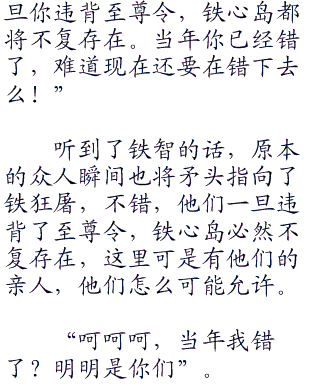 旦你违背至尊令，铁心岛都
将不复存在。当年你已经错
了，难道现在还要在错下去
么！”
听到了铁智的话，原本
的众人瞬间也将矛头指向了
铁狂屠，不错，他们一旦违
背了至尊令，铁心岛必然不
复存在，这里可是有他们的
亲人，他们怎么可能允许。
“呵呵呵，当年我错
了？明明是你们”。